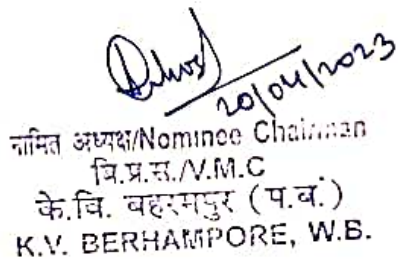 20/04/2023
नामित अध्यक्ष/Nominee Chairman
वि.प्र.स./V.M.C
के.वि. बहरमपुर (प.बं.)
K.V. BERHAMPORE, W.B.